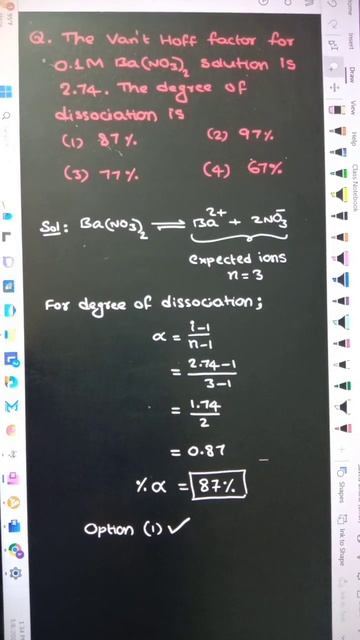 Q. The Van't Hoff factor for
0.1M Ba(NO₃)₂ solution is
2.74. The degree of
dissociation is
(1) 87%
(2) 97%
(3) 77%
(4) 67%
Sol: Ba(NO₃)₂ ⇌ Ba²⁺ + 2NO₃⁻
expected ions
n=3
For degree of dissociation;
α = i-1/n-1
= 2.74-1/3-1
= 1.74/2
= 0.87
%α = 87%
Option (1) ✓
Insert
Draw
View
Help
Class Notebook
Shapes
Ink to Shape